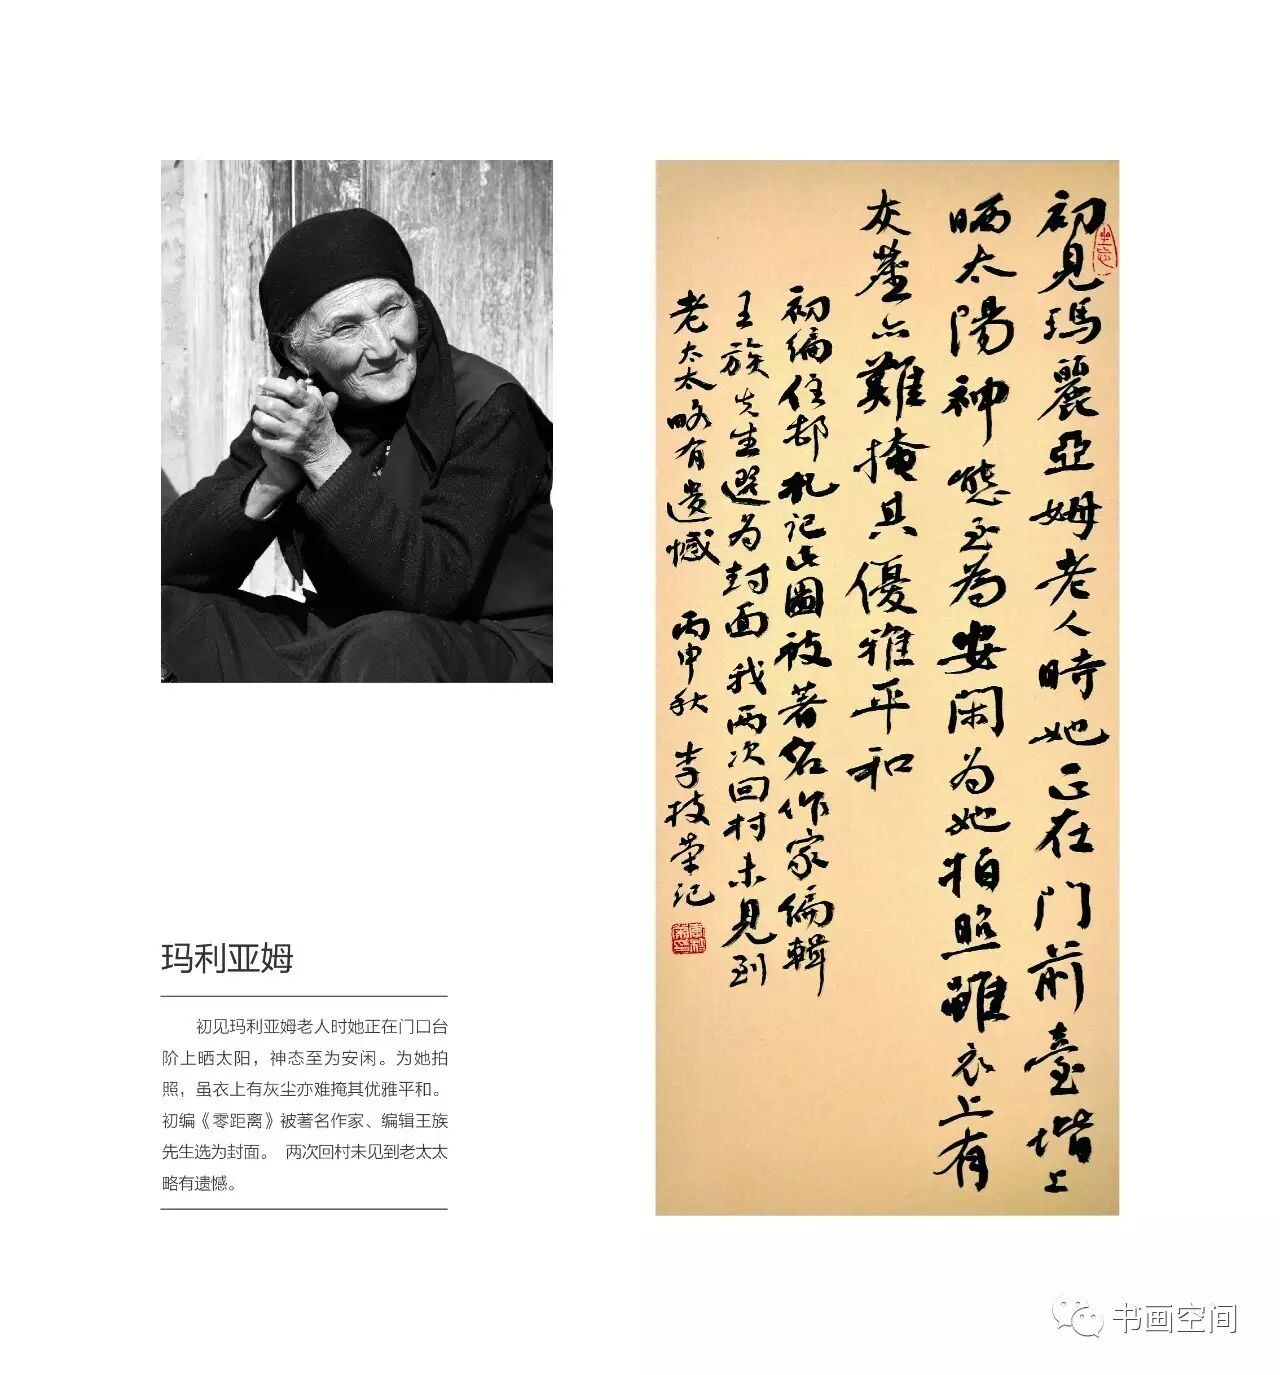 初見瑪麗亞姆老人時她正在門前臺堦上
晒太陽神態至为安閑为她拍照雖衣上有
灰塵亦難掩其優雅平和
初编住郝札记此圖被著名作家编輯
王族先生選为封面我两次回村未見到
老太太略有遗憾 丙申秋 李枝荣记
坐忘
玛利亚姆
初见玛利亚姆老人时她正在门口台
阶上晒太阳，神态至为安闲。为她拍
照，虽衣上有灰尘亦难掩其优雅平和。
初编《零距离》被著名作家、编辑王族
先生选为封面。 两次回村未见到老太太
略有遗憾。
书画空间